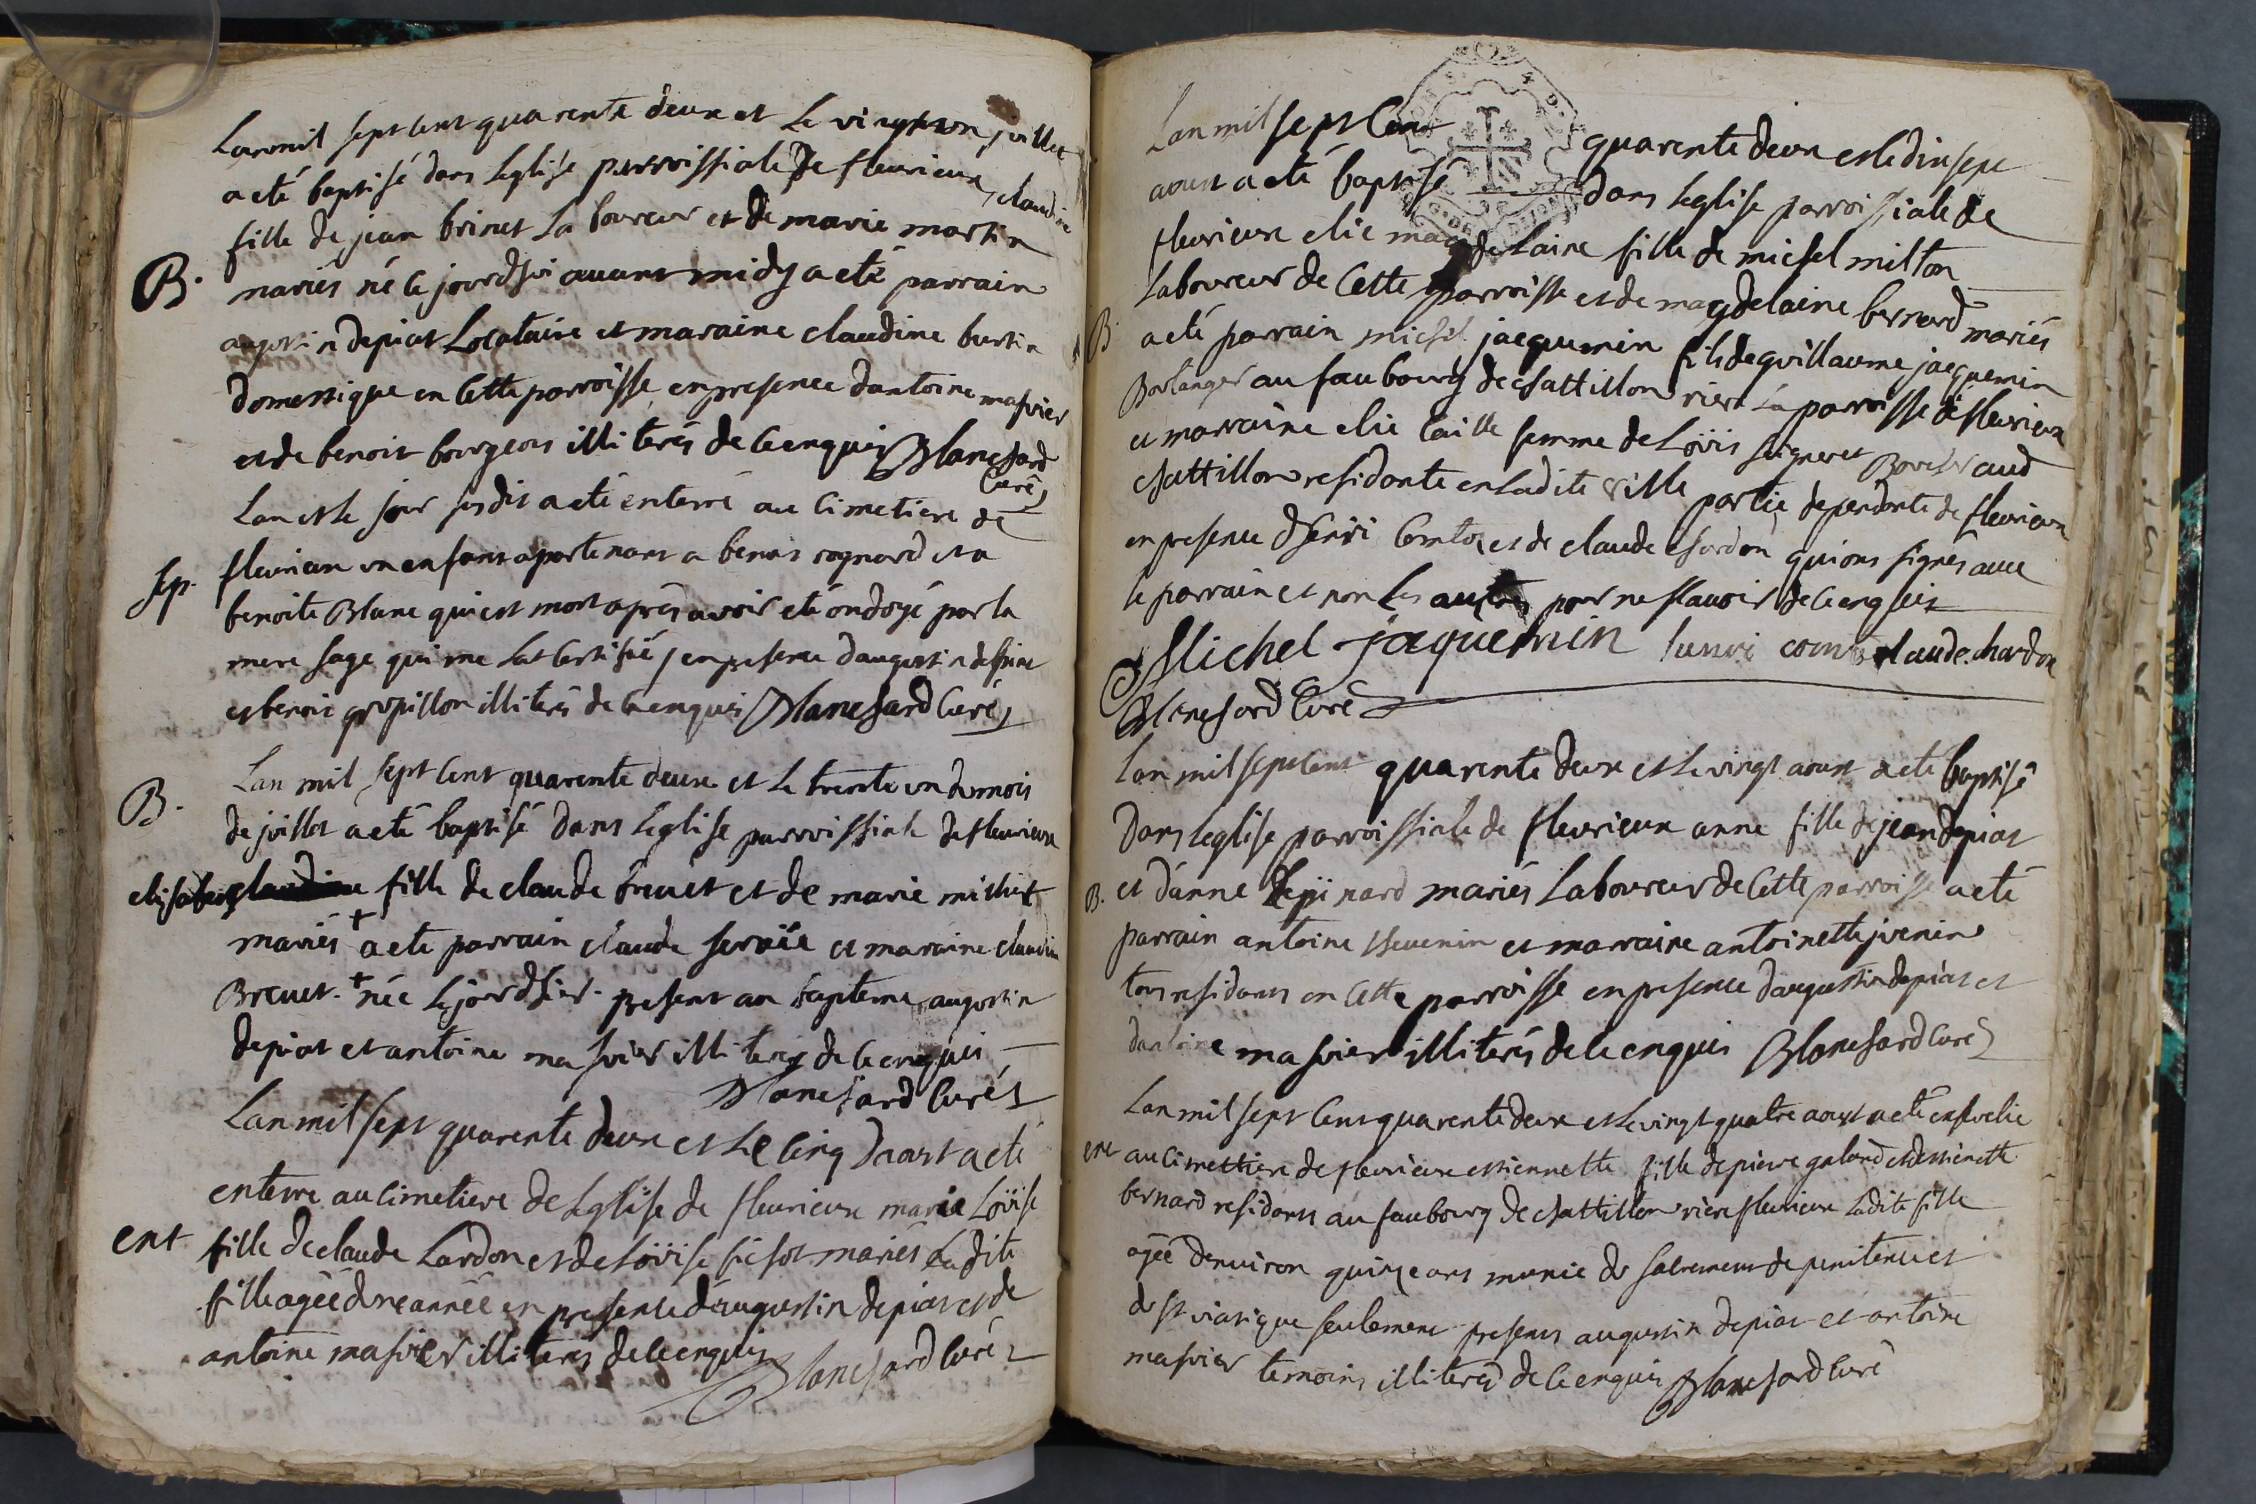 Lan mil sept cent quarente deux et le vingt un juillet
a eté baptisé dans leglise parroissiale de fleurieux claudine
fille de jean brinet laboureur et de marie martin
B. mariés né ce jourdhui avant midy a eté parrain
augustin depiat Locataire et maraine claudine burtin
domestique en cette parroisse en presence dantoine masvier
et de benoit bourgeois illiterés de ce enquis Blanchard
Curé
Lan et le jour susdit a eté enterré au cimetiere de
sep. fleurieux un enfant apartenant a benois rognard et a
benoite Blanc qui est mort aprés avoir eté ondoyé par la
mere sage qui me lat certifié, en presence daugustin
et benoit gropillon illiterés de ce enquis Blanchard Curé
Lan mil sept cent quarente deux et le trente un du mois
B. de juillet a eté baptisé dans leglise parroissiale de fleurieux
elisabet claudine fille de claude breuet et de marie millet
mariés + a eté parrain claude servie et maraine claudine
Breuet. + née le jour dhier. present au bapteme augustin
depiat et antoine masvier illiterés de ce enquis
Blanchard Curé
Lan mil sept quarente deux et le cinq daoust a eté
enterre au cimetiere de leglise de fleurieux marie Loüise
ent fille de claude Lardon et de Loüise fichot mariés Ladite
fille agée dune année en presence daugustin depiat et de
antoine masvier illiterés de ce enquis
Blanchard Curé
Lan mil sept Cent quarente deux et le dix sept
aoust a eté baptisé dans leglise parroissiale de
fleurieux elie magdelaine fille de michel milton
laboureur de cette parroisse et de magdelaine bernard mariés
B a eté parrain michel jacquemin fils de guillaume jacquemin
Boulanger au faubourg de chattillon riere la parroisse de fleurieux
et marraine elie caille femme de Loüis seigneret Boucher aud
chattillon residante en ladite ville partie dependante de fleurieux
en presence dhenri Comte et de claude chardon qui ont signés avec
le parrain et non les autres pour ne scavoir de ce enquis
Michel jaquemin henri comte claude chardon
Blanchard Curé
Lan mil sept cent quarente deux et le vingt aoust a eté baptisé
Dans leglise parroissiale de fleurieux anne fille de jean depiat
B. et danne depinard mariés Laboureur de cette parroisse a eté
parrain antoine thevenin et marraine antoinette jvenin
tous residants en cette parroisse en presence daugustin depiat et
dantoine masvier illiterés de ce enquis Blanchard Curé
Lan mil sept Cent quarente deux et le vingt quatre aoust a eté ensevelie
ent au cimettiere de fleurieux estiennette fille de pierre galand et destienette
bernard residants au faubourg de chattillon riere fleurieux ladite fille
agée denviron quinze ans munie du sacrement de penitence et
du st viatique seulement presents augustin depiat et antoine
masvier temoins illiterés de ce enquis Blanchard Curé